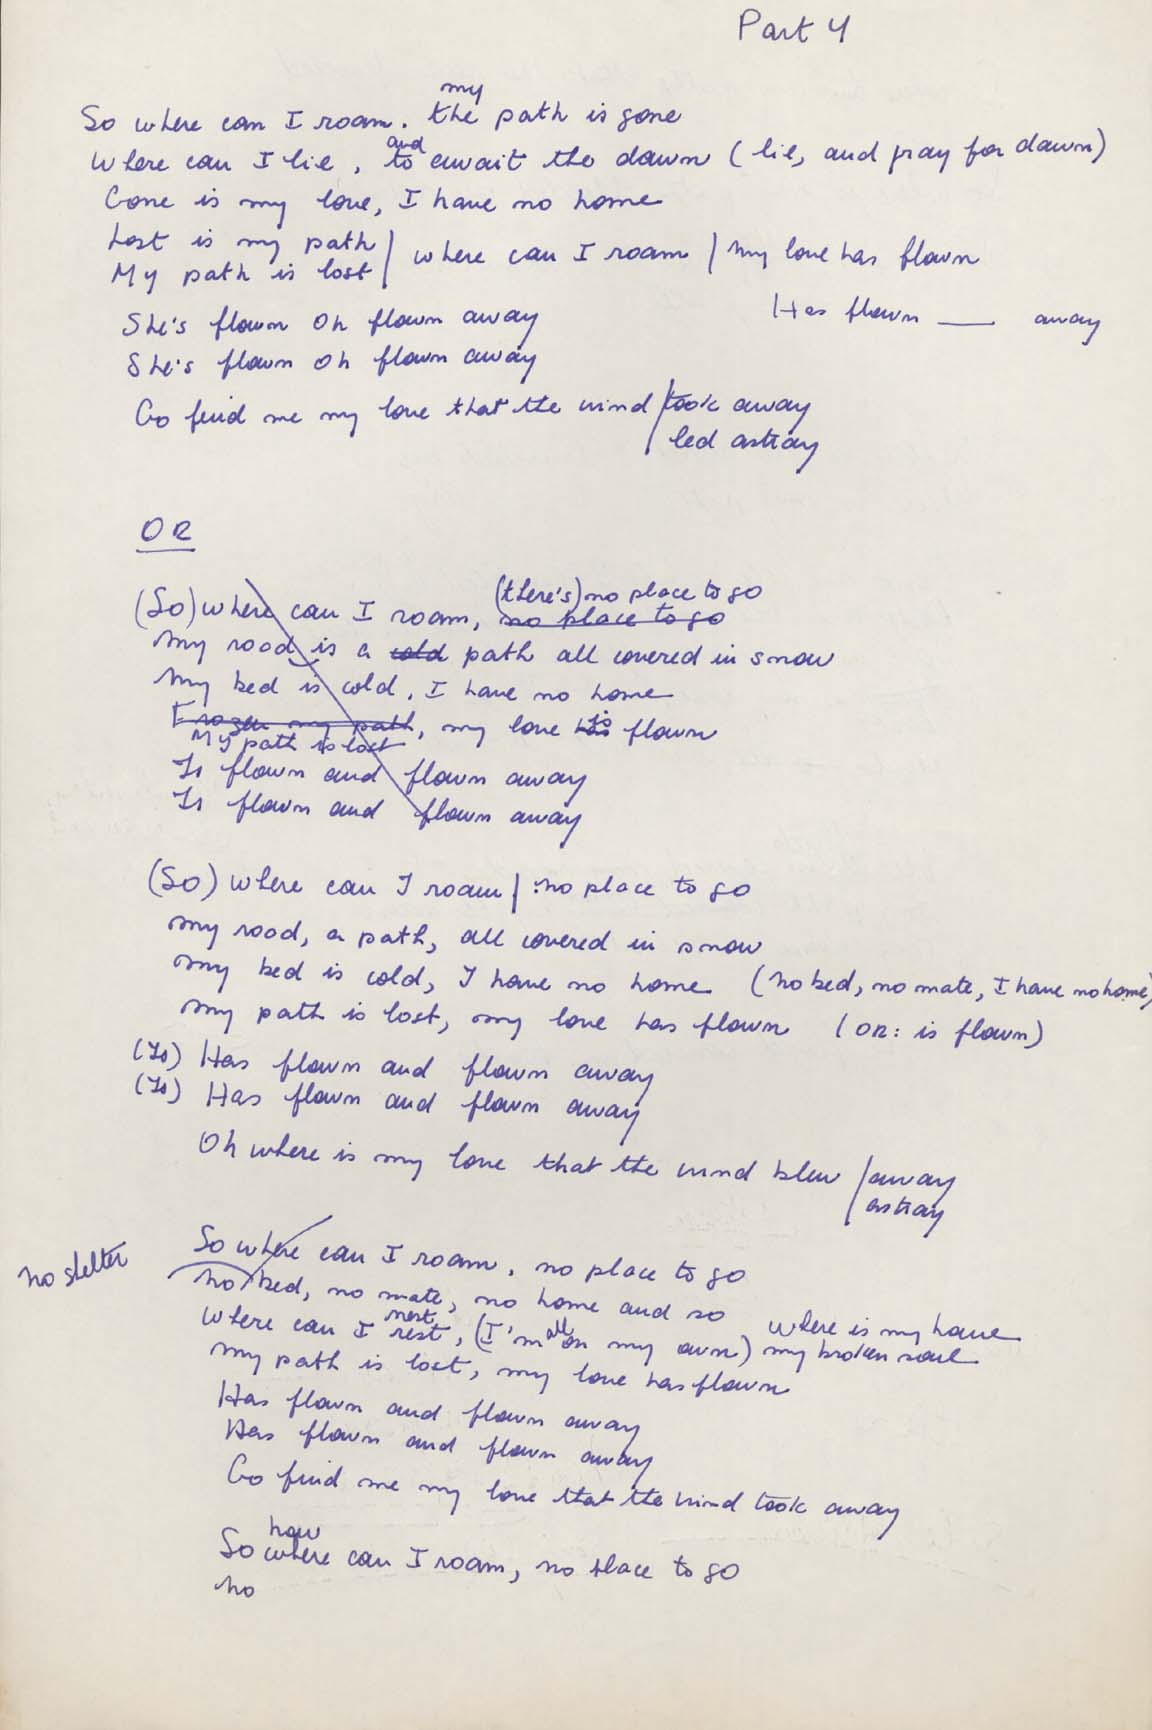 Part 4
my
So where can I roam. the path is gone
and
Where can I lie, to await the dawn (lie, and pray for dawn)
Gone is my love, I have no home
Lost is my path
My path is lost / where can I roam / my love has flown
She's flown oh flown away
Has flown — away
She's flown oh flown away
Go find me my love that the wind / took away
led astray
OR
(there's) no place to go
(So) where can I roam, no place to go
My road is a cold path all covered in snow
My bed is cold. I have no home
is
Frozen my path, my love has flown
My path is lost
Is flown and flown away
Is flown and flown away
(So) where can I roam / no place to go
My road, a path, all covered in snow
My bed is cold, I have no home (no bed, no mate, I have no home)
My path is lost, my love has flown (OR: is flown)
(Is) Has flown and flown away
(Is) Has flown and flown away
Oh where is my love that the wind blew / away
astray
So where can I roam. no place to go
no shelter
No bed, no mate, no home and so
nest all where is my home
Where can I rest, (I'm on my own) my broken soul
My path is lost, my love has flown
Has flown and flown away
Has flown and flown away
Go find me my love that the wind took away
how
So where can I roam, no place to go
No